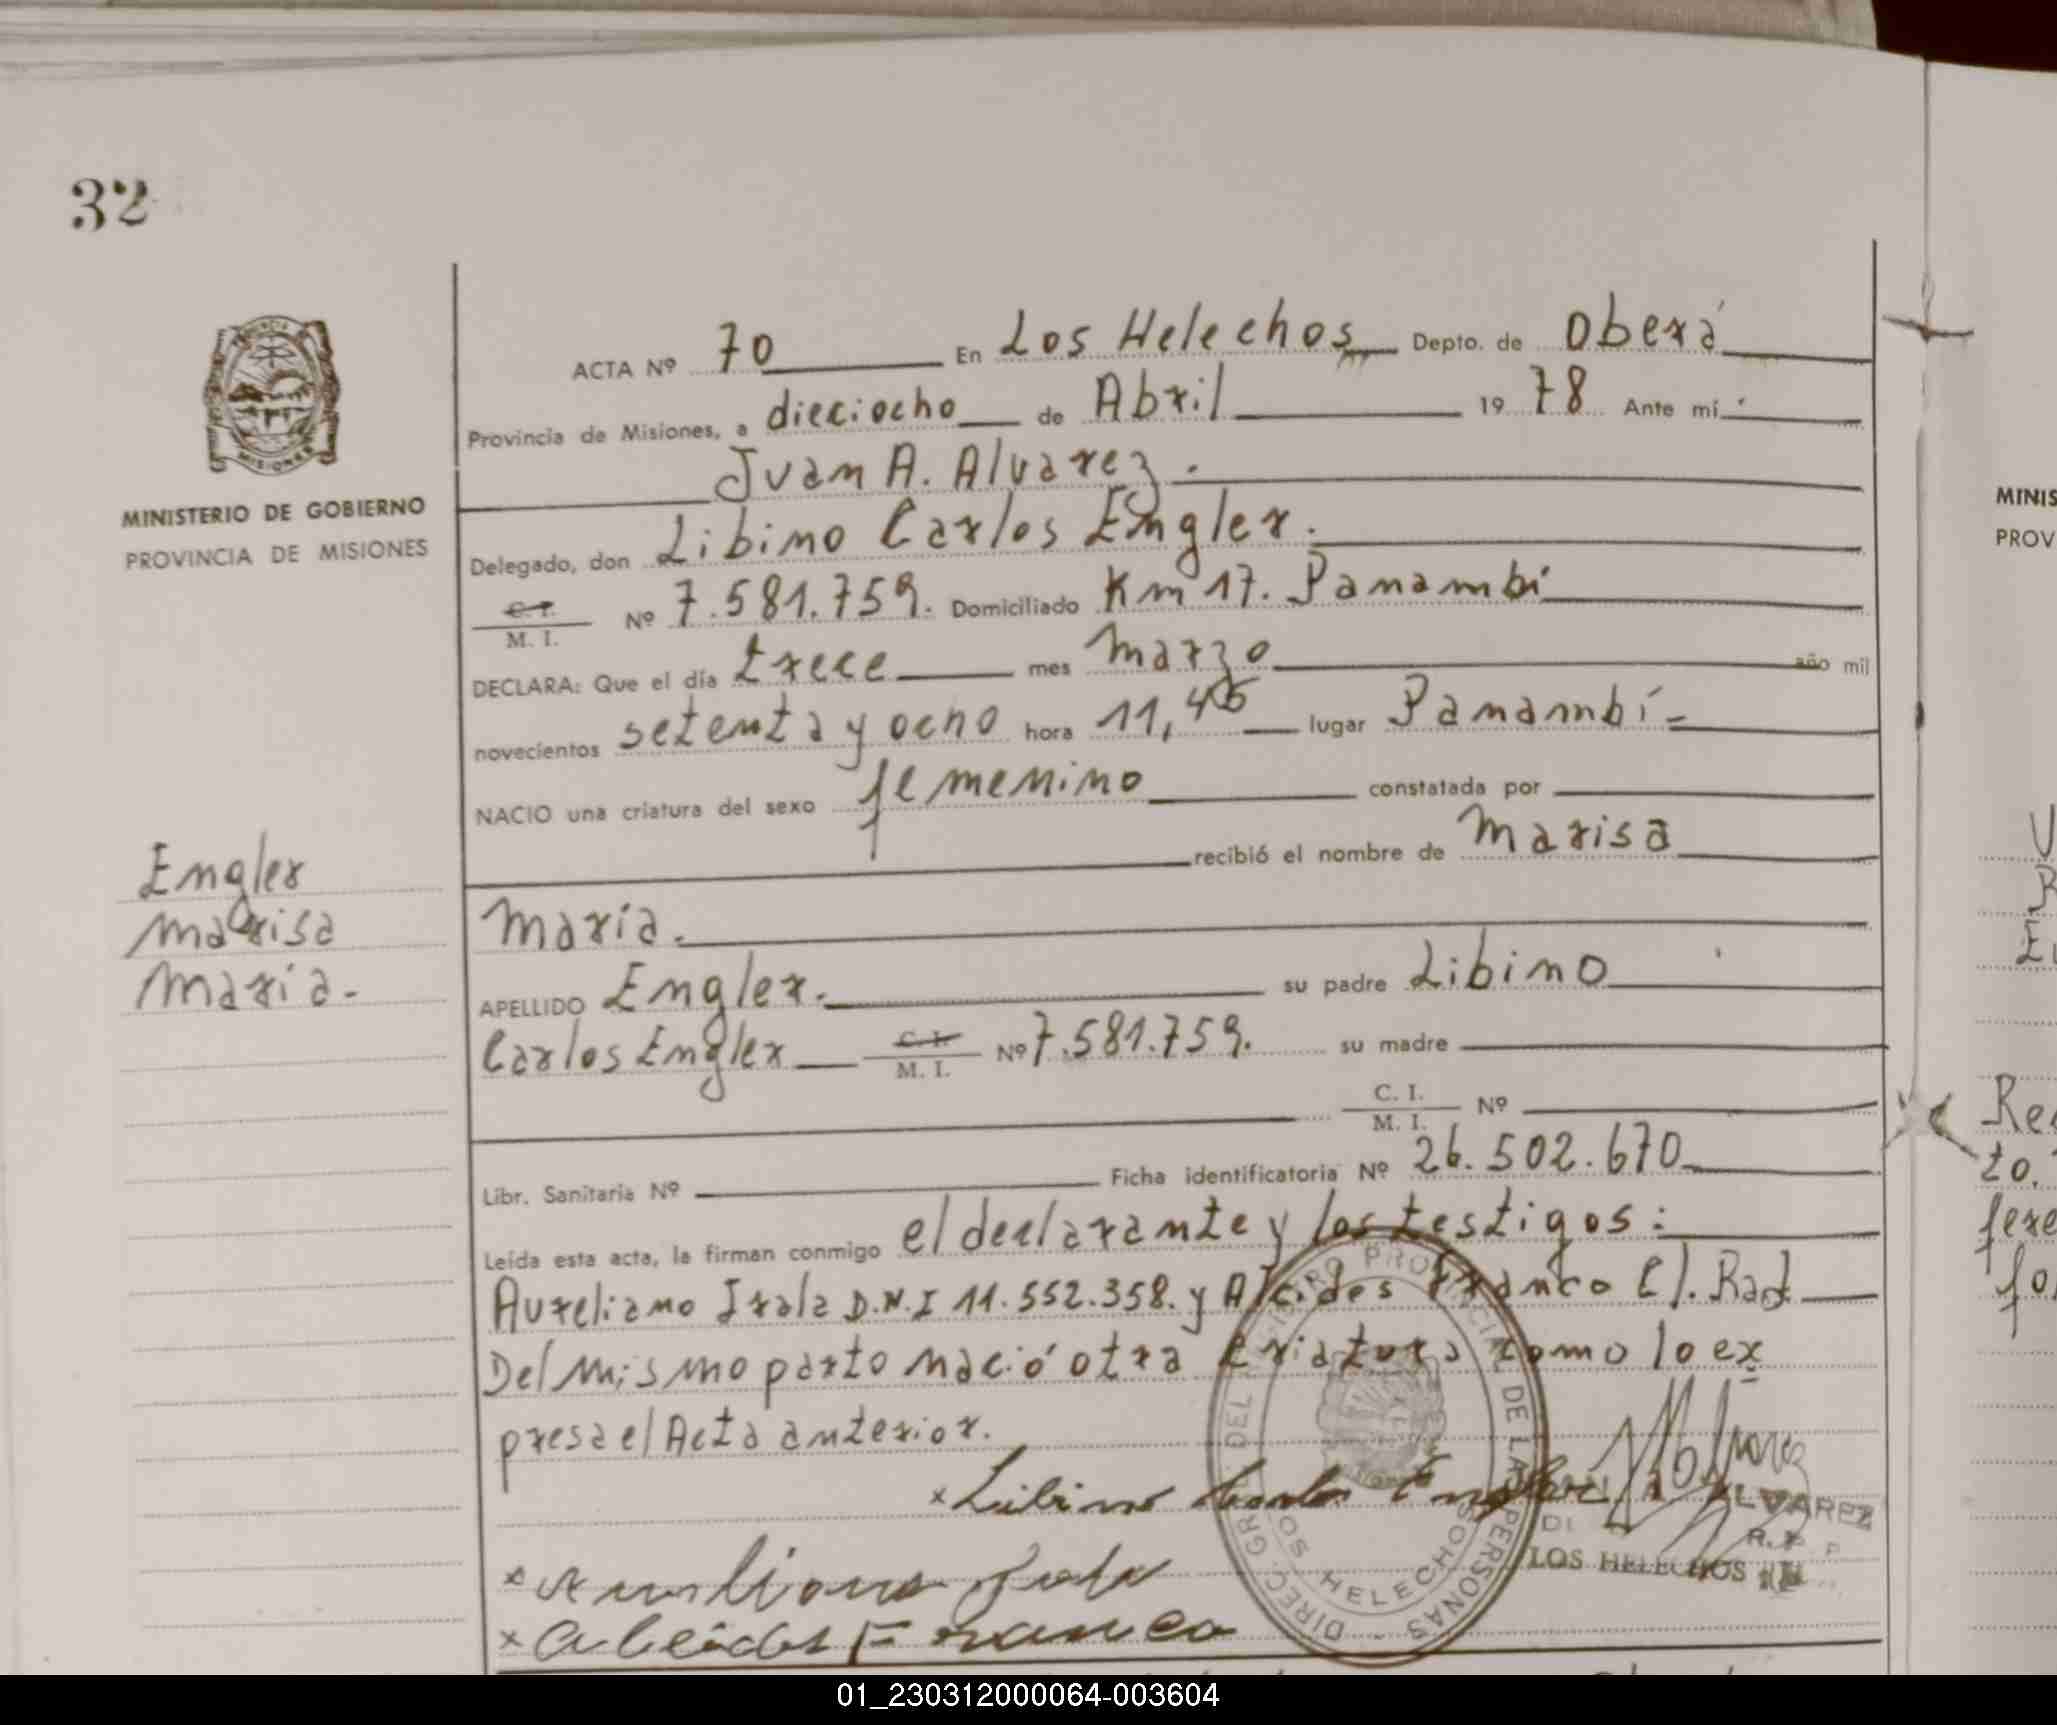 32
MINISTERIO DE GOBIERNO
PROVINCIA DE MISIONES
ACTA Nº 70 En Los Helechos Depto. de Oberá
Provincia de Misiones, a dieciocho de Abril 19 78 Ante mí
Juan A. Alvarez.
Delegado, don Libino Carlos Engler.
C. I. / M. I. Nº 7.581.759. Domiciliado Km 17. Panambí
DECLARA: Que el día trece mes Marzo año mil
novecientos setenta y ocho hora 11,45 lugar Panambí
NACIO una criatura del sexo femenino constatada por
recibió el nombre de Marisa
María.
APELLIDO Engler. su padre Libino
Carlos Engler C. I. / M. I. Nº 7.581.759. su madre
C. I. / M. I. Nº
Libr. Sanitaria Nº Ficha identificatoria Nº 26.502.670
Leída esta acta, la firman conmigo el declarante y los testigos:
Aureliano Irala D.N.I 11.552.358. y Alcides Franco Cl. Rad.
Del mismo parto nació otra criatura como lo ex
presa el Acta anterior.
Libino Carlos Engler
Aureliano Irala
Alcides Franco
Engler
Marisa
María.
DIREC. GRAL. DEL REGISTRO PROVINCIAL DE LAS PERSONAS
LOS HELECHOS
JUAN A. ALVAREZ
R. P. P.
LOS HELECHOS
MINIS
PROV
01_230312000064-003604